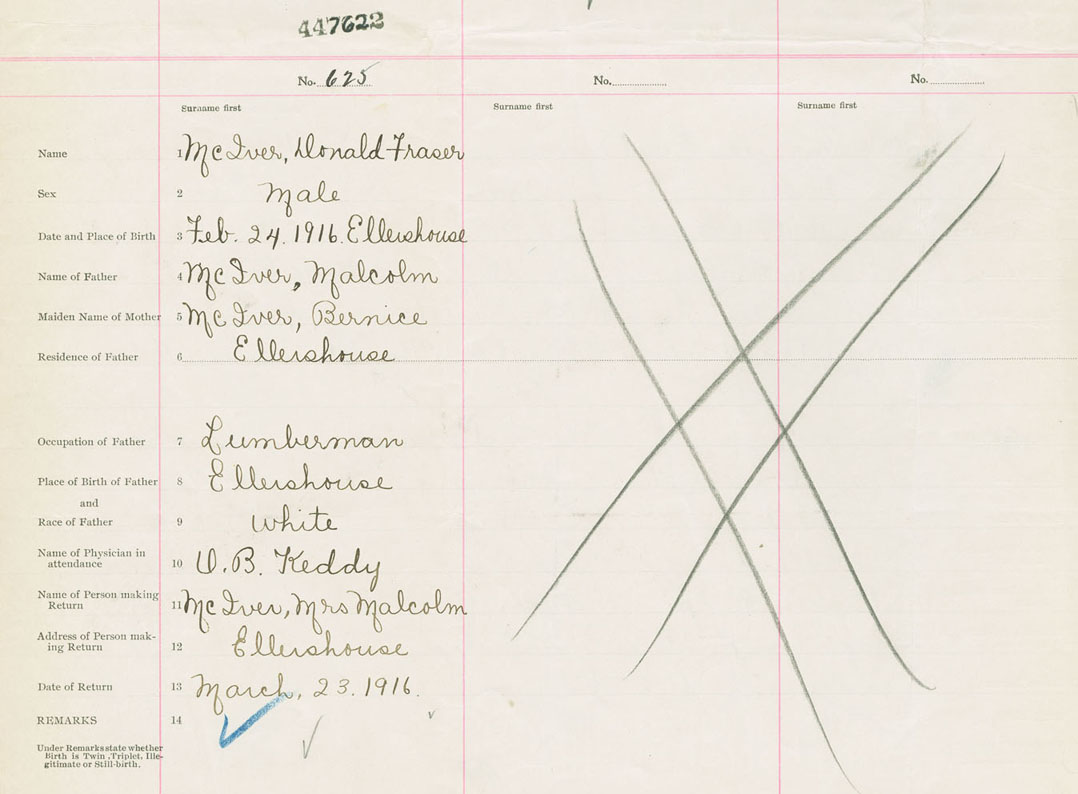 447622
No. 625 No. No.
Surname first Surname first Surname first
Name 1 McIver, Donald Fraser
Sex 2 Male
Date and Place of Birth 3 Feb. 24. 1916. Ellershouse
Name of Father 4 McIver, Malcolm
Maiden Name of Mother 5 McIver, Bernice
Residence of Father 6 Ellershouse
Occupation of Father 7 Lumberman
Place of Birth of Father 8 Ellershouse
and
Race of Father 9 White
Name of Physician in
attendance 10 O. B. Keddy
Name of Person making
Return 11 McIver, Mrs Malcolm
Address of Person mak-
ing Return 12 Ellershouse
Date of Return 13 March, 23. 1916.
REMARKS 14
Under Remarks state whether
Birth is Twin, Triplet, Ille-
gitimate or Still-birth.